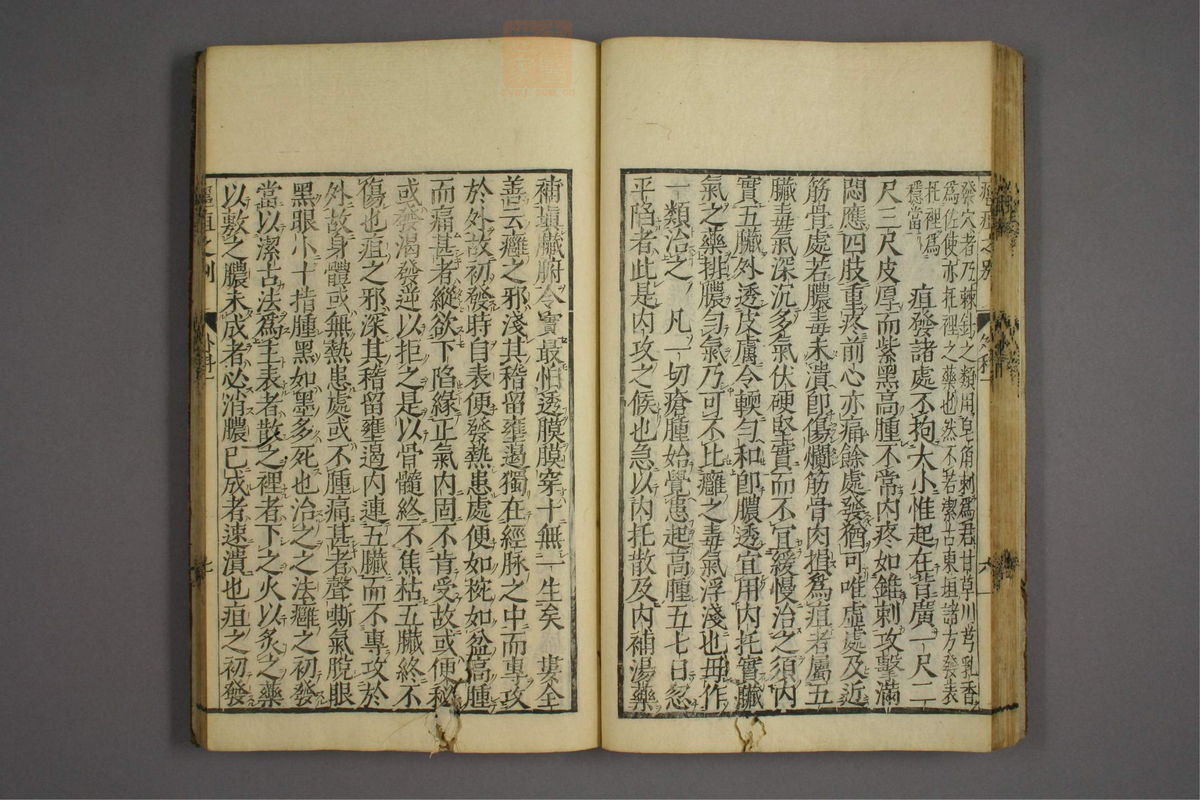 癰疽之別 外科一 六
發穴者乃棘針之類用皂角刺爲君甘草川芎乳香
爲佐使亦托裡之藥也然不若潔古東垣諸方發表
托裡爲
穩當
疽發諸處不拘大小惟起在背廣一尺二
尺三尺皮厚而紫黑高腫不常內疼如錐刺攻擊滿
悶應四肢重疼前心亦痛餘處發猶可唯虛處及近
筋骨處若膿毒未潰卽傷爛筋骨肉損爲疽者屬五
臟毒氣深沉多氣伏硬堅實而不宜緩慢治之須內
實五臟外透皮膚令輭勻和卽膿透宜用內托實臟
氣之藥排膿勻氣乃可不比癰之毒氣浮淺也毋作
一類治之 凡一切瘡腫始覺患起高腫五七日忽
平陷者此是內攻之候也急以內托散及內補湯藥
補塡臟腑令實最怕透膜膜穿十無一生矣 婁全
善云癰之邪淺其稽留壅遏獨在經脉之中而專攻
於外故初發時自表便發熱患處便如椀如盆高腫
而痛甚者縱欲下陷緣正氣內固不肯受故或便秘
或發渴發逆以拒之是以骨髓終不焦枯五臟終不
傷也疽之邪深其稽留壅遏內連五臟而不專攻於
外故身體或無熱患處或不腫痛甚者聲嘶氣脫眼
黑眼小十指腫黑如墨多死也治之之法癰之初發
當以潔古法爲主表者散之裡者下之火以炙之藥
以敷之膿未成者必消膿已成者速潰也疽之初發
癰疽之別 外科一 七